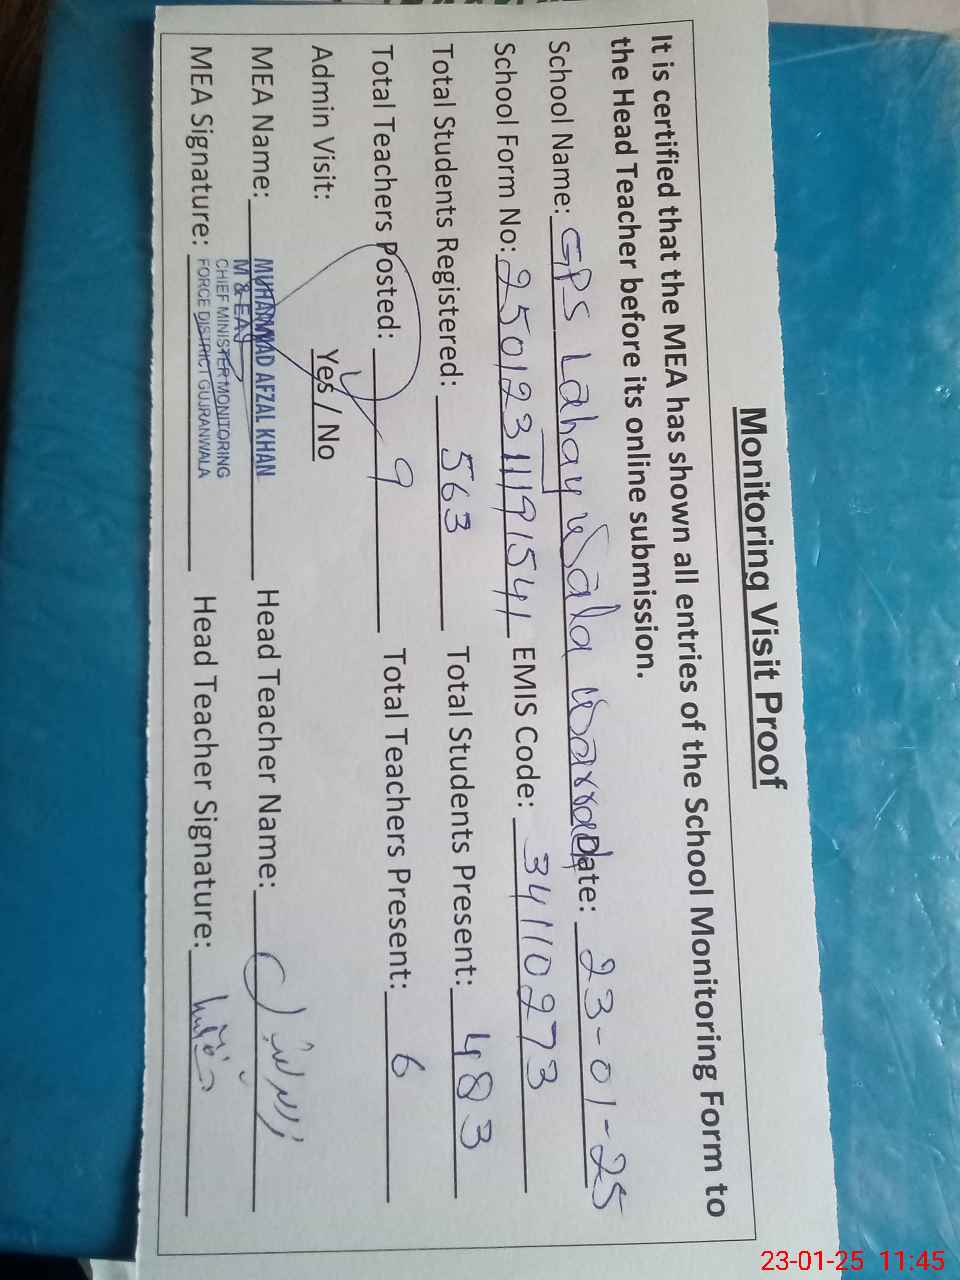 Monitoring Visit Proof
It is certified that the MEA has shown all entries of the School Monitoring Form to
the Head Teacher before its online submission.
School Name: GPS Lahay Wala Warrach Date: 23-01-25
School Form No: 25012311191541 EMIS Code: 34110273
Total Students Registered: 563 Total Students Present: 483
Total Teachers Posted: 9 Total Teachers Present: 6
Admin Visit: Yes / No
MEA Name: MUHAMMAD AFZAL KHAN Head Teacher Name:
M & EA
CHIEF MINISTER MONITORING
MEA Signature: FORCE DISTRICT GUJRANWALA Head Teacher Signature:
23-01-25 11:45